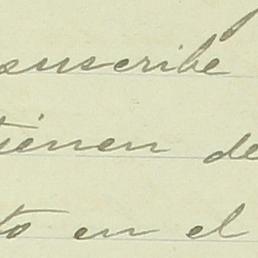 suscribe
tienen de
to en el